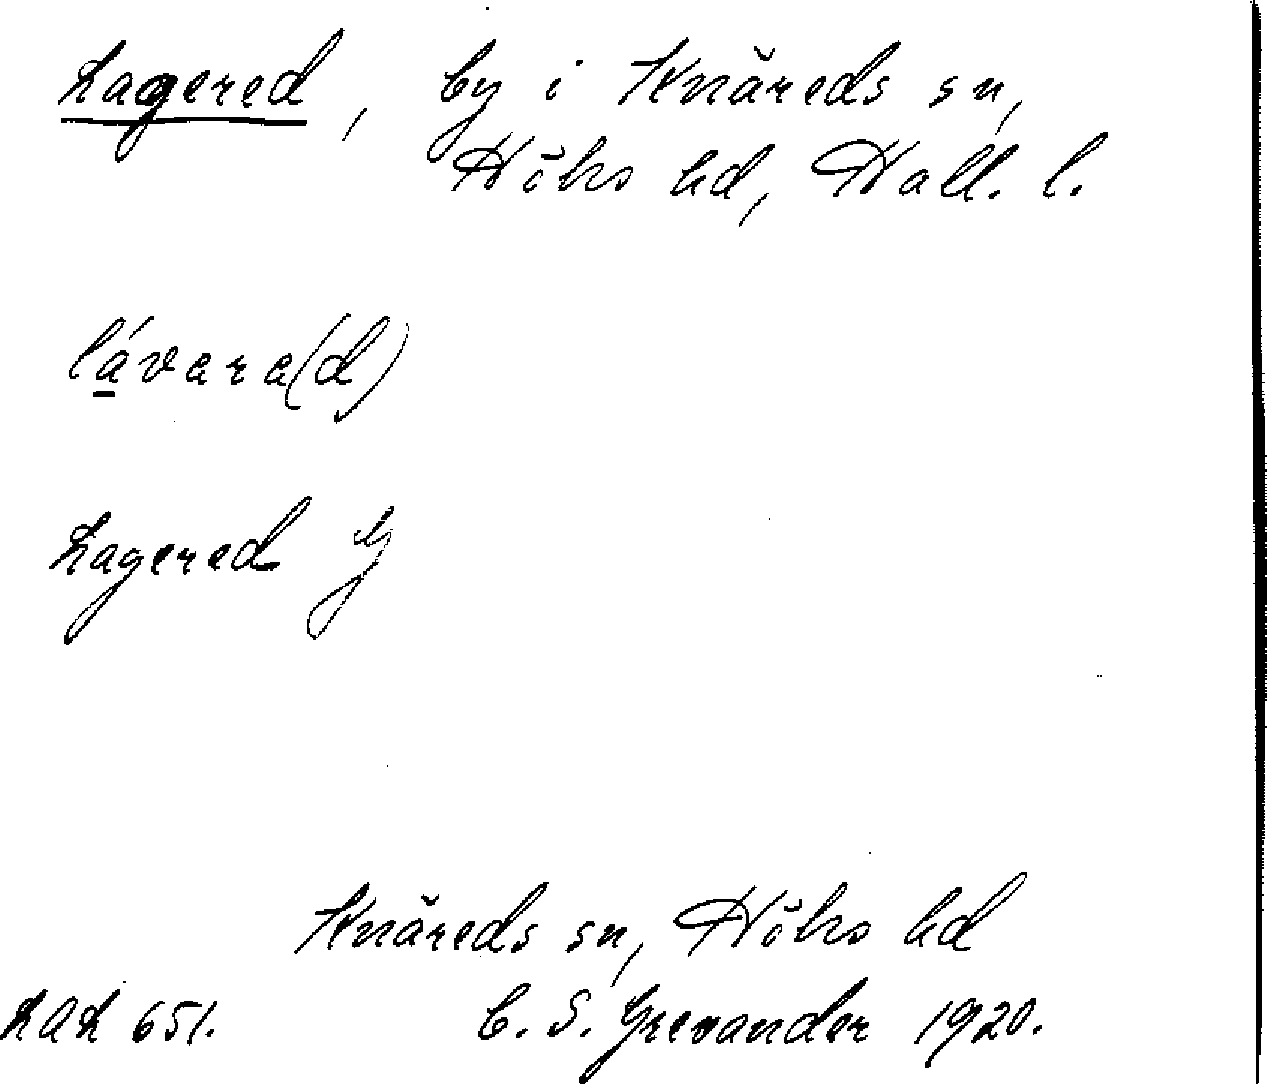 Lagered, by i Knäreds sn,
Höks hd, Hall. l.
lávara(d)
Lagered G
Knäreds sn, Höks hd
LAL 651. C. S. Grevander 1920.